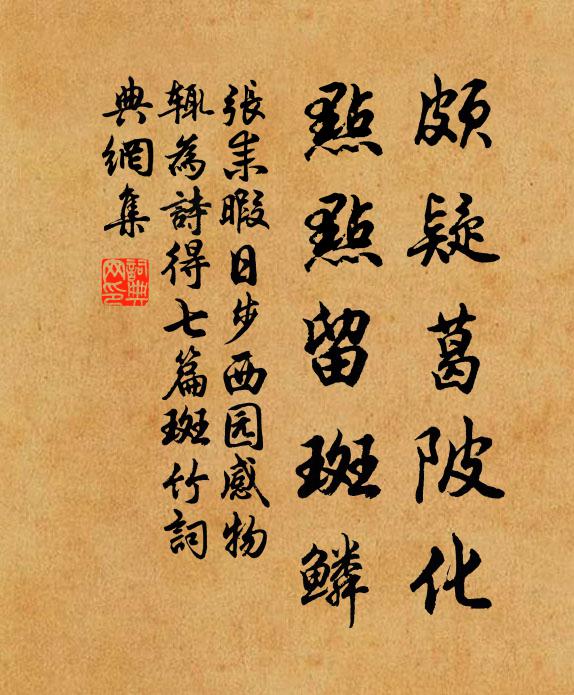 頗疑葛陂化
點點留斑鱗
張耒暇日步西园感物
輒為詩得七篇斑竹詞
典網集
詞典網印